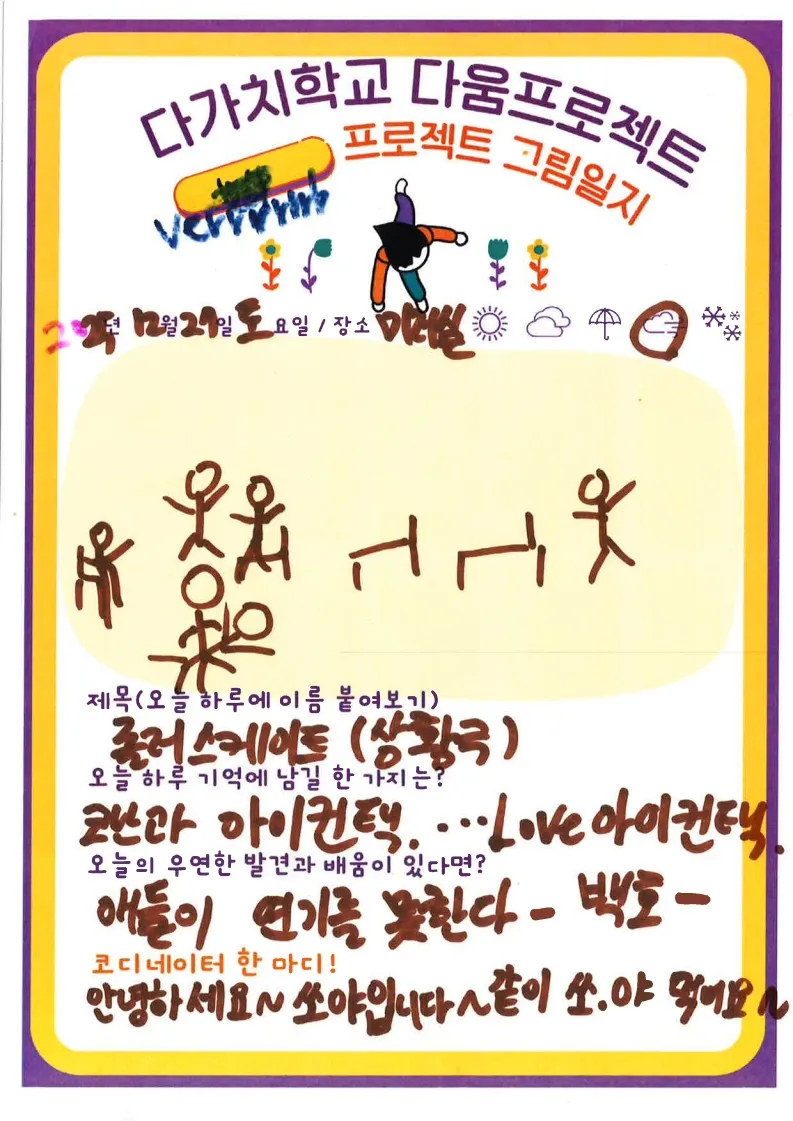 다가치학교 다움프로젝트
프로젝트 그림일지
년 12월 21일 토요일 / 장소
제목(오늘 하루에 이름 붙여보기)
롤러스케이트 (상황극)
오늘 하루 기억에 남길 한 가지는?
코난과 아이컨택. ...Love 아이컨택.
오늘의 우연한 발견과 배움이 있다면?
애들이 연기를 못한다 - 백호 -
코디네이터 한 마디!
안녕하세요~ 쏘야입니다~ 같이 쏘.야 먹어요~